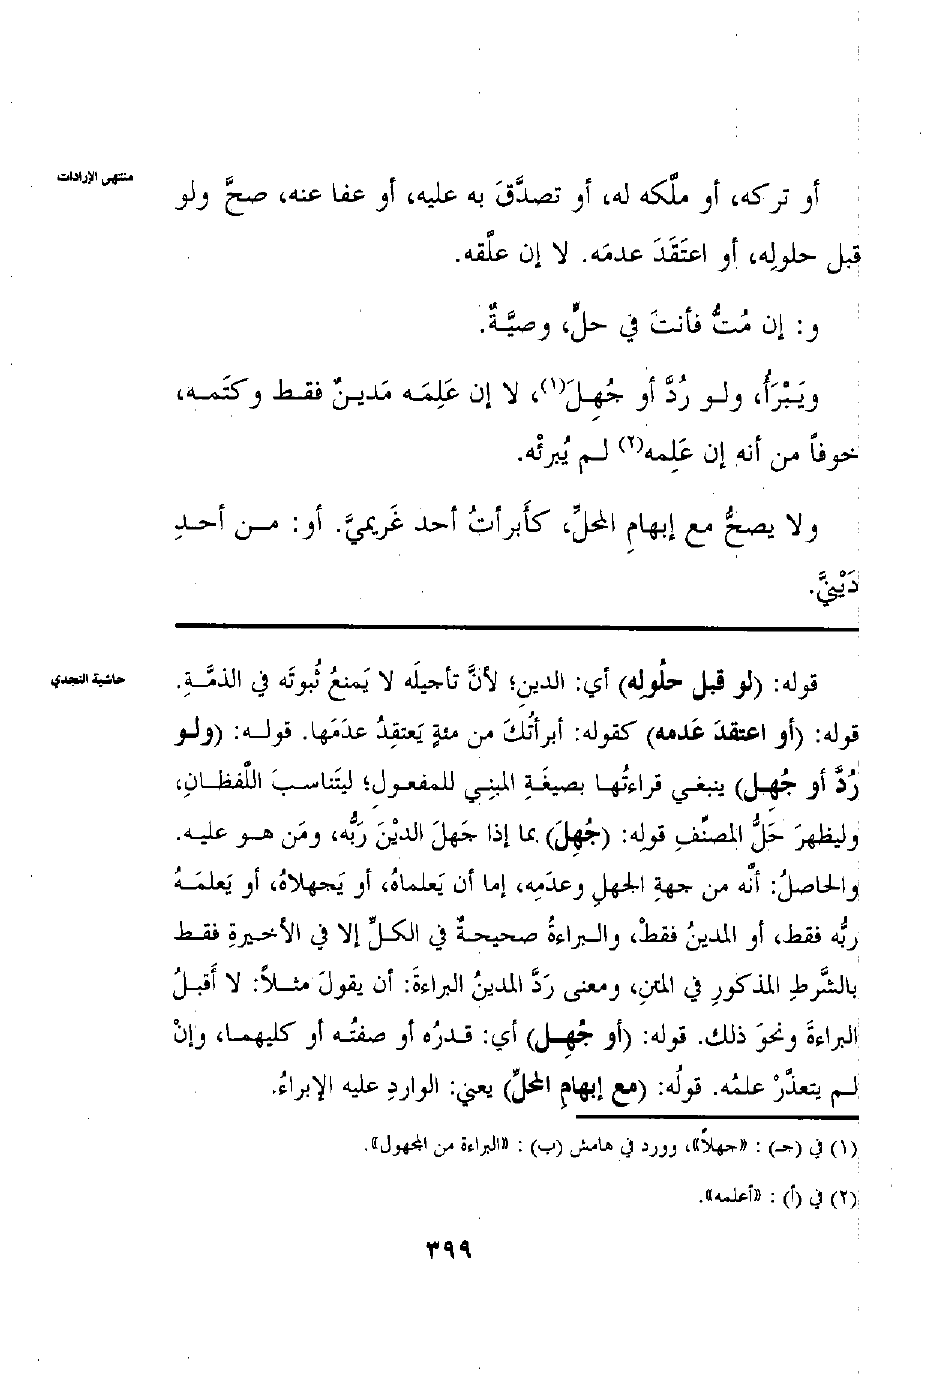 منتهى الإرادات
أو تركه، أو ملَّكه له، أو تصدَّقَ به عليه، أو عفا عنه، صحَّ ولو
قبل حلولِه، أو اعتَقَدَ عدمَه. لا إن علَّقه.
و: إن مُتُّ فأنتَ في حلٍّ، وصيَّةٌ.
ويَبْرَأُ، ولو رُدَّ أو جُهِلَ(١)، لا إن عَلِمَه مَدينٌ فقط وكتَمه،
خوفاً من أنه إن عَلِمه(٢) لم يُبرئْه.
ولا يصحُّ مع إبهامِ المحلِّ، كأَبرأتُ أحد غَريميَّ. أو: من أحدِ
دَيْنيَّ.
حاشية النجدي
قوله: (لو قبل حلُولِه) أي: الدينِ؛ لأنَّ تأجيلَه لا يَمنعُ ثبُوتَه في الذمَّةِ.
قوله: (أو اعتقدَ عَدمه) كقوله: أبرأتُكَ من مئةٍ يَعتقِدُ عدَمَها. قوله: (ولو
رُدَّ أو جُهِل) ينبغي قراءتُها بصيغَةِ المبنِي للمفعول؛ ليتَناسبَ اللَّفظانِ،
وليظهرَ حَلُّ المصنِّفِ قولِه: (جُهِلَ) بما إذا جَهلَ الديْنَ رَبُّه، ومَن هو عليه.
والحاصلُ: أنَّه من جهةِ الجهلِ وعدَمِه، إما أن يَعلماهُ، أو يَجهلاهُ، أو يَعلمَهُ
ربُّه فقط، أو المدينُ فقطْ، والبراءةُ صحيحةٌ في الكلِّ إلا في الأخيرةِ فقط
بالشَّرطِ المذكورِ في المتنِ، ومعنى رَدَّ المدينُ البراءةَ: أن يقولَ مثلاً: لا أَقبلُ
البراءةَ ونحوَ ذلك. قوله: (أو جُهِل) أي: قدرُه أو صفتُه أو كليهما، وإنْ
لم يتعذَّرْ علمُه. قولُه: (مع إبهامِ المحلِّ) يعني: الواردِ عليه الإبراءُ.
(١) في (جـ) : «جهلاً»، وورد في هامش (ب) : «البراءة من المجهول».
(٢) في (أ) : «أعلمه».
٣٩٩